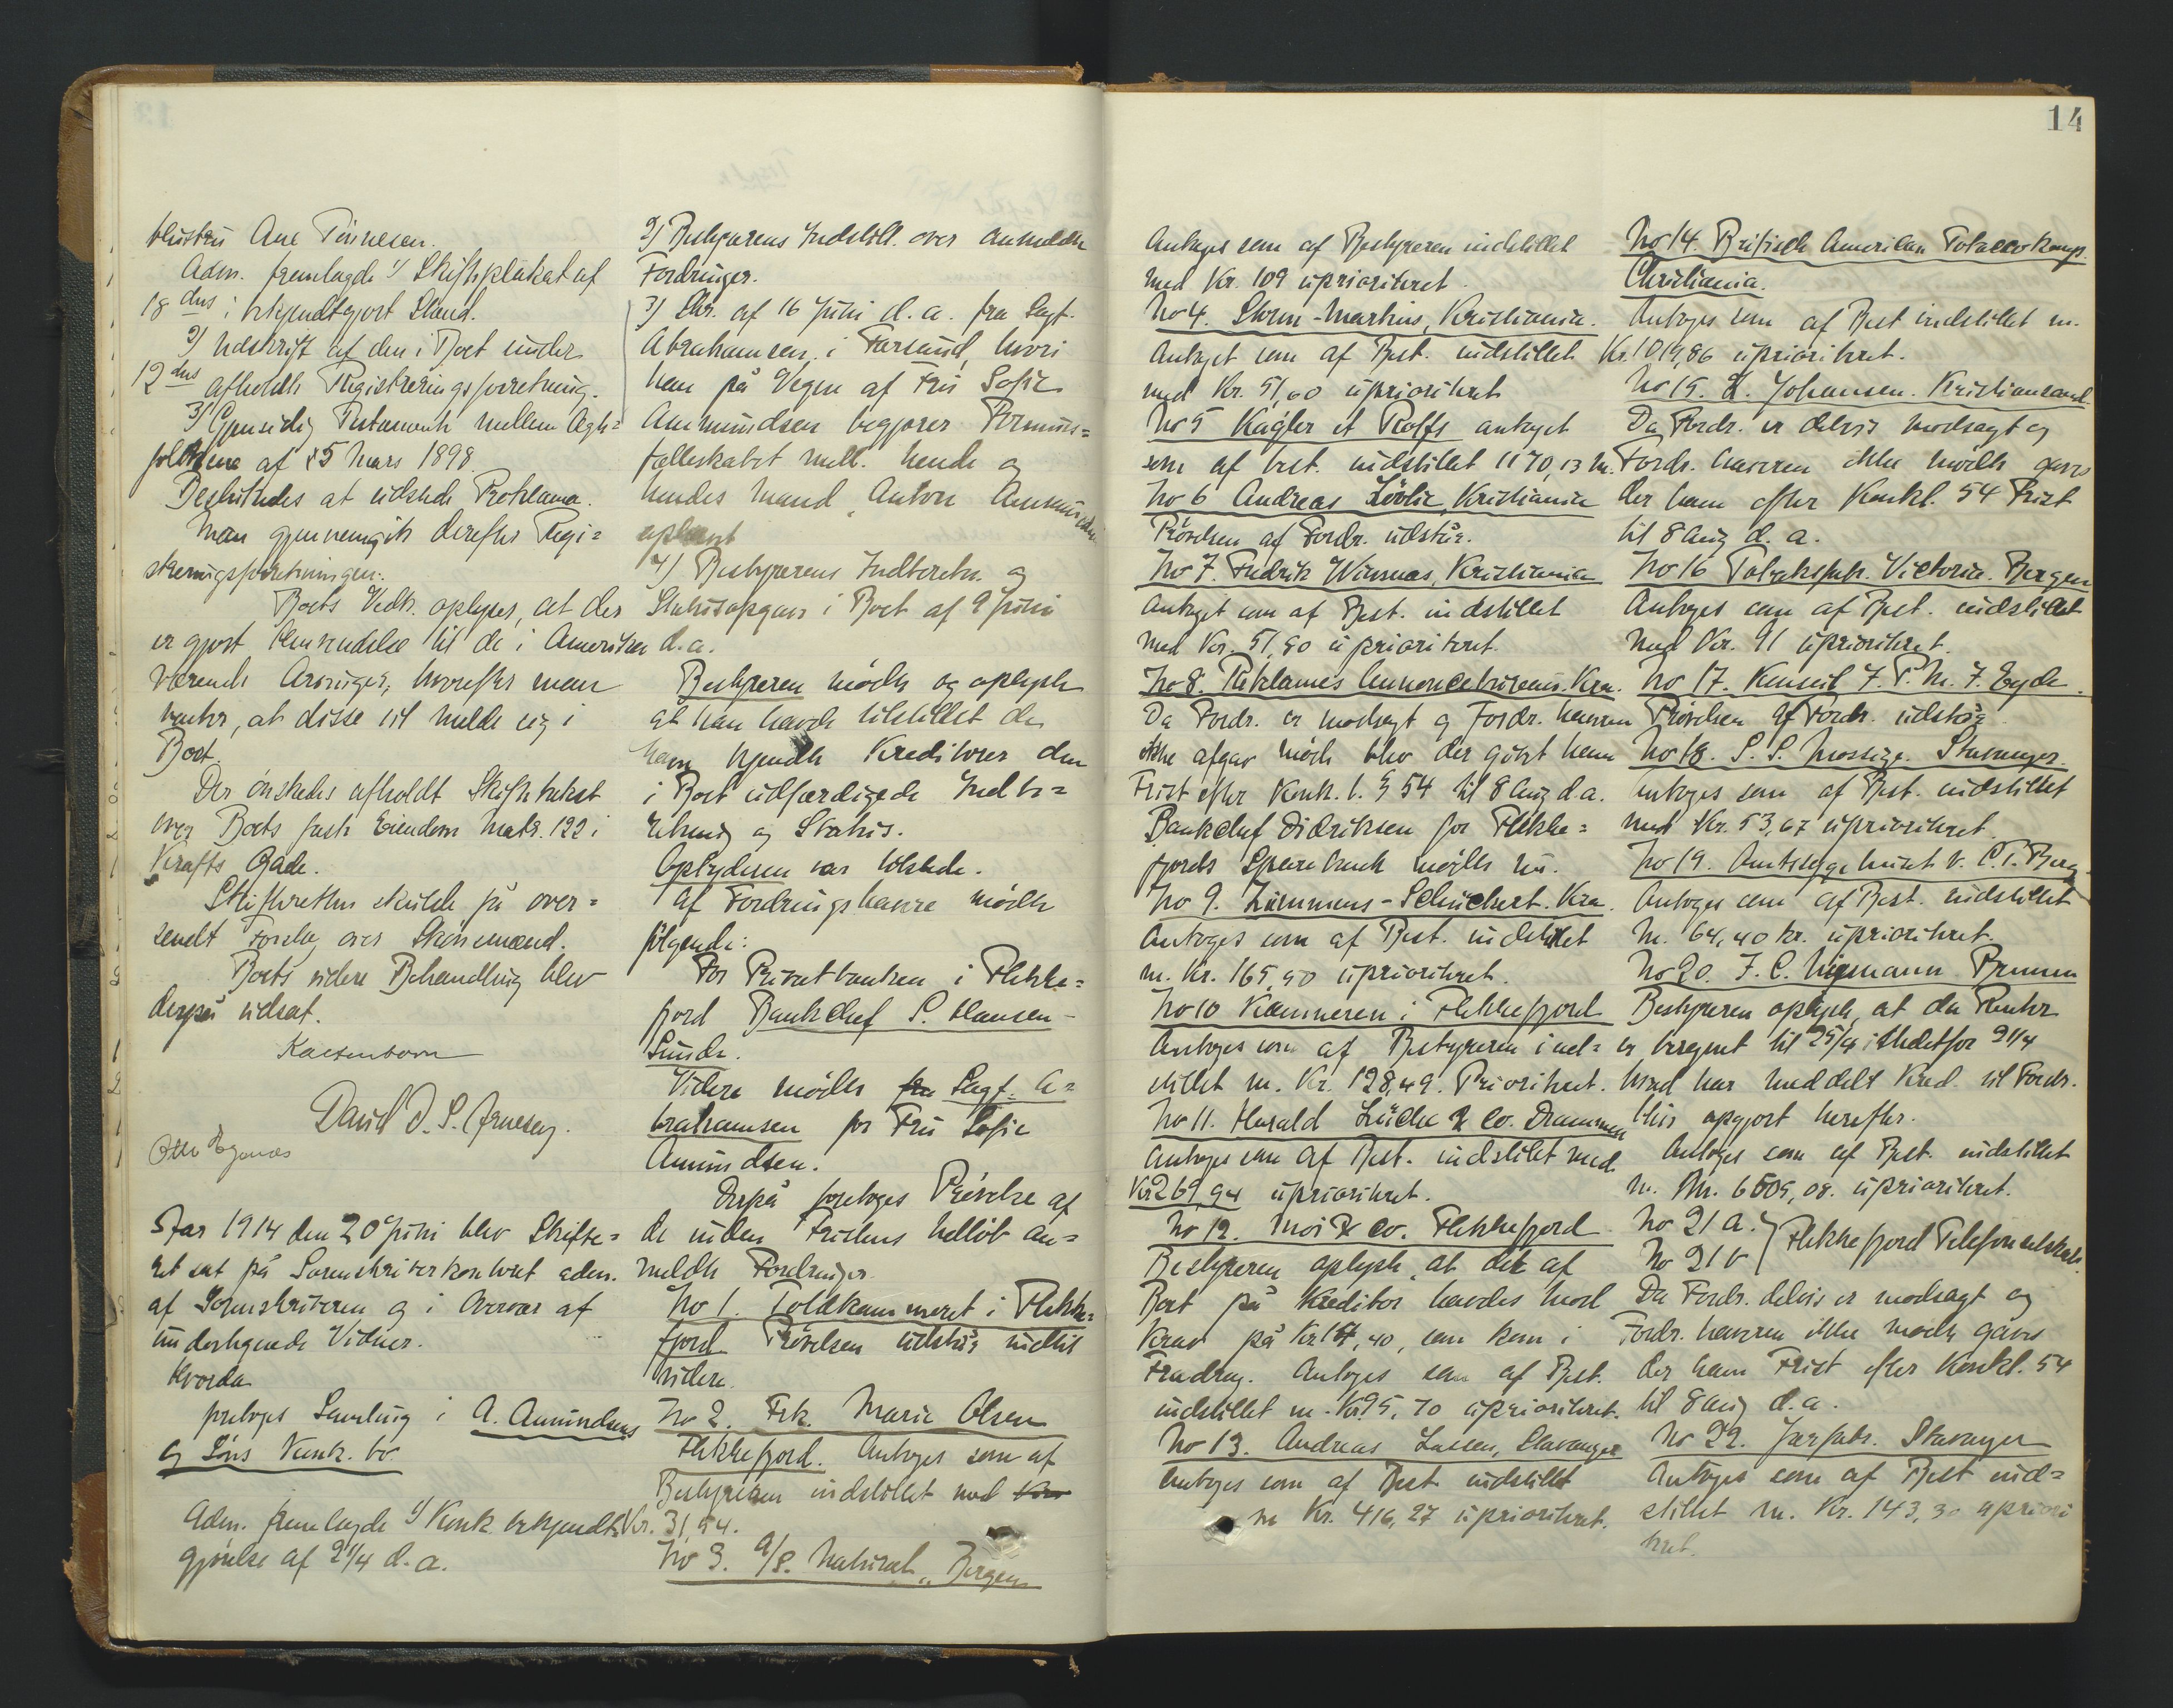 14
hustru Ane Tönnesen.
Adm. fremlagde 1/ Skifteplakat af
18 dns i bekjendtgjort Stand.
2/ Udskrift af den i Boet under
12 dns afholdte Registreringsforretning.
3/ Gjensidig Testamente mellem Ægte=
folkene af 25 Mars 1898.
Besluttedes at udstede Proklama.
Man gjennemgik derefter Regi=
streringsforretningen.
Boets Vedk. oplyser, at der
er gjort Henvendelse til de i Amerika
værende Arvinger, hvorefter man
venter, at disse vil melde sig i
Boet.
Der önskedes afholdt Skiftetakst
over Boets faste Eiendom Matr. 122 i
Krafts Gade.
Skifteretten skulde få over=
sendt Forslag over Skönsmænd.
Boets videre Behandling blev
derpå udsat.
Kaltenborn
David D. S. Arnesen.
Otto Egenæs
År 1914 den 20 Juni blev Skifte=
ret sat på Sorenskriverkontoret adm.
af Sorenskriveren og i Overvær af
undertegnede Vidner.
Hvorda
foretoges Samling i A. Amundsens
og Söns Konk. bo.
Adm. fremlagde 1/ Konk. bekjendt
gjörelse af 21/4 d. a.
2/ Bestyrerens Indstill. over anmeldte
Fordringer.
3/ Skr. af 16 Juni d. a. fra Sagf.
Abrahamsen i Farsund, hvori
han på Vegne af Fru Sofie
Ammundsen begjærer Formues=
fælleskabet mell. hende og
hendes Mand, Anton Ammundsen
ophævet
4/ Bestyrerens Indberetn. og
Statusopgave i Boet af 9 Juni
d. a.
Bestyreren mödte og oplyste
at han havde tilstillet de
ham kjendte Kreditorer den
i Boet udfærdigede Indbe=
retning og Status.
Opbyderen var tilstede.
Af Fordringshavere mödte
fölgende:
For Privatbanken i Flekke=
fjord Bankchef S. Hansen-
Sunde.
Videre mödte fra Sagf. A=
brahamsen for Fru Sofie
Amundsen.
Derpå foretoges Prövelse af
de inden Fristens Udlöb an=
meldte Fordringer.
No 1. Toldkammeret i Flekke=
fjord Prövelsen udstår indtil
videre.
No 2. Frk. Marie Olsen
Flekkefjord. Antoges som af
Bestyreren indstillet med Kr
Kr. 31,94.
No 3. A/S. Natural, Bergen
Antoges som af Bestyreren indstillet
med Kr. 109 uprioriteret.
No 4. Strm-Martius, Kristiania.
Antoget som af Best. indstillet
med Kr. 51,00 uprioriteret
No 5 Kägler et Rolfs antoget
som af best. indstillet 1170,13 M.
No 6 Andreas Lövlie, Kristiania
Prövelsen af Fordr. udstår.
No 7. Fredrik Winsnæs, Kristiania
Antoget som af Best. indstillet
med Kr. 51,90 uprioriteret.
No 8. Reklames Annoncebureau. Kra.
Da Fordr. er modsagt og Fordr. haveren
ikke afgav möde blev der givet ham
Frist efter Konk. l. § 54 til 8 Aug d. a.
Bankchef Didriksen for Flekke=
fjords Sparebank mödte nu.
No 9. Siemens-Schuckert. Kra.
Antoges som af Best. indstillet
m. Kr. 165,90 uprioriteret.
No 10 Kæmneren i Flekkefjord
Antoges som af Bestyreren ind=
stillet m. Kr. 128,49. Prioriteret.
No 11. Harald Lücke & Co. Drammen
Antoges som af Best. indstillet med
Kr 269,94 uprioriteret.
No 12. Moi & Co. Flekkefjord
Bestyreren oplyste, at der af
Boet på Kreditor havdes Mod
Krav på Kr 164,40, som kom i
Fradrag. Antoges som af Best.
indstillet m. Kr 95,70 uprioriteret.
No 13. Andreas Lassen, Stavanger
Antoges som af Best indstillet
m Kr. 416,27 uprioriteret.
No 14. British American Tobacco komp.
Christiania.
Antoges som af Best indstillet m.
Kr. 1019,86 uprioriteret.
No 15. L. Johansen. Kristiansand.
Da Fordr. er delvis modsagt og
Fordr. haveren ikke mödte gaves
der ham efter Konkl. 54 Frist
til 8 Aug d. a.
No 16 Tobaksfabr. Victoria. Bergen
Antoges som af Best. indstillet
med Kr. 91 uprioriteret.
No 17. Konsul J. P. M. F. Eyde.
Prövelsen af Fordr. udstår
No 18. S. S. Mossige. Stavanger.
Antoges som af Best. indstillet
med Kr. 53,67 uprioriteret.
No 19. Amtssygehuset v. C. T. Berg.
Antoges som af Best. indstillet
m. 64,40 kr. uprioriteret.
No 20. F. C. Bremen
Bestyreren oplyste, at da Renter
er beregnet til 25/4 istedetfor 21/4
hvad har meddelt Kred. vil Fordr.
blive opgjort herefter.
Antoges som af Best. indstillet
m. Mr. 6605,08. uprioriteret.
No 21 a.
No 21 b } Flekkefjord Telefonselskab.
Da Fordr. delvis er modsagt og
Fordr. haveren ikke mödte gaves
der ham Frist efter Konkl. 54
til 8 Aug d. a.
No 22. Stavanger
Antoges som af Best ind=
stillet m. Kr. 143,30 upriori
teret.